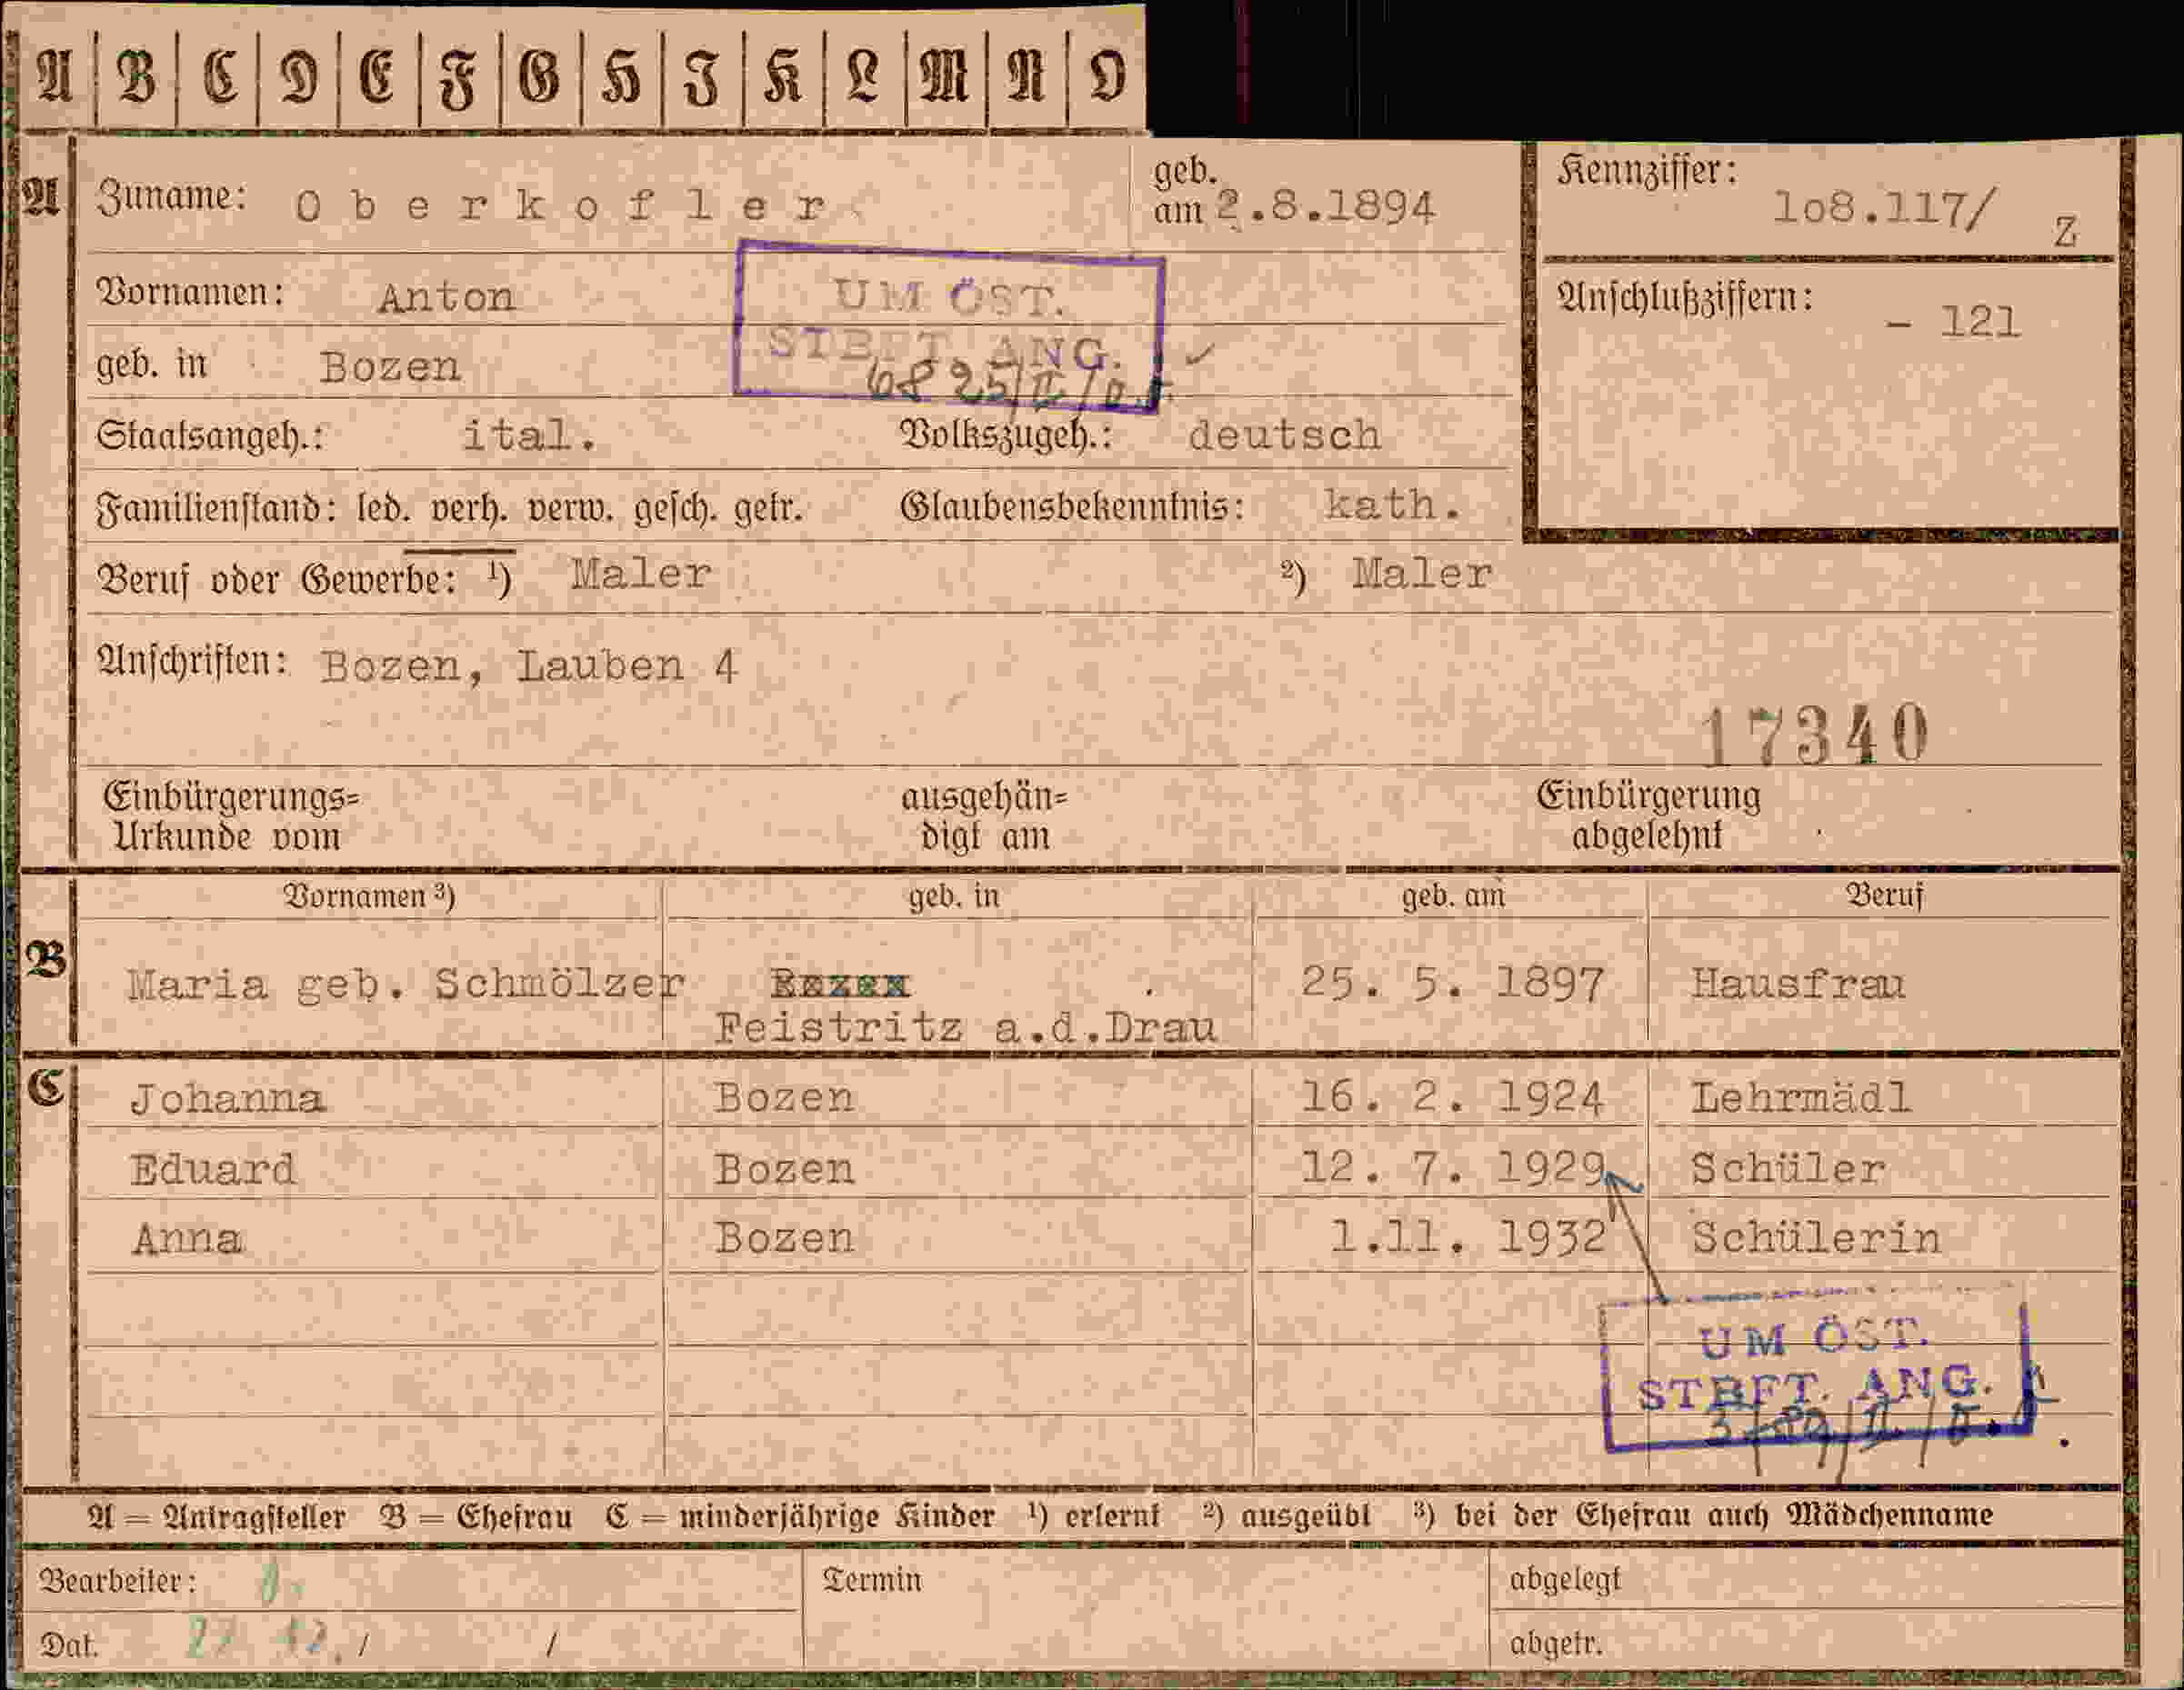 A B C D E F G H I K L M N O
A Zuname: Oberkofler geb. am 2.8.1894 Kennziffer: 1o8.117/ Z
Vornamen: Anton UM ÖST. Anschlußziffern: - 121
geb. in Bozen STBFT. ANG.
Staatsangeh.: ital. Volkszugeh.: deutsch
Familienstand: led. verh. verw. gesch. getr. Glaubensbekenntnis: kath.
Beruf oder Gewerbe: ¹) Maler ²) Maler
Anschriften: Bozen, Lauben 4
17340
Einbürgerungs= ausgehän= Einbürgerung
Urkunde vom digt am abgelehnt
Vornamen ³) geb. in geb. am Beruf
B Maria geb. Schmölzer Bozen 25. 5. 1897 Hausfrau
Feistritz a.d.Drau
C Johanna Bozen 16. 2. 1924 Lehrmädl
Eduard Bozen 12. 7. 1929 Schüler
Anna Bozen 1.11. 1932 Schülerin
UM ÖST.
STBFT. ANG.
A = Antragsteller B = Ehefrau C = minderjährige Kinder ¹) erlernt ²) ausgeübt ³) bei der Ehefrau auch Mädchenname
Bearbeiter: Termin abgelegt
Dat. / / abgetr.